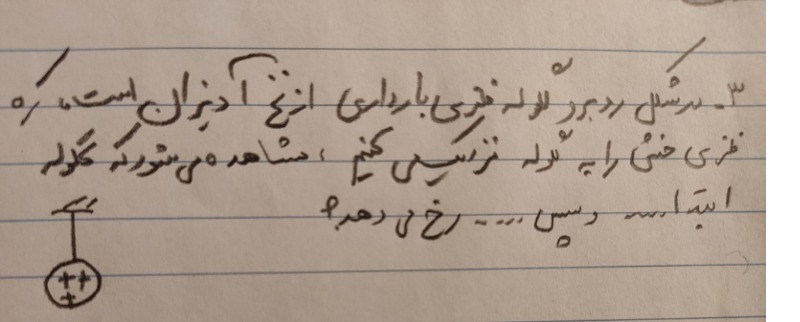 ۳- در شکل روبرو گلوله فلزی بارداری از نخ آویزان است، کره
فلزی خنثی را به گلوله نزدیک می کنیم، مشاهده می شود که گلوله
ابتدا ..... و سپس .... رخ می دهد؟
++
+